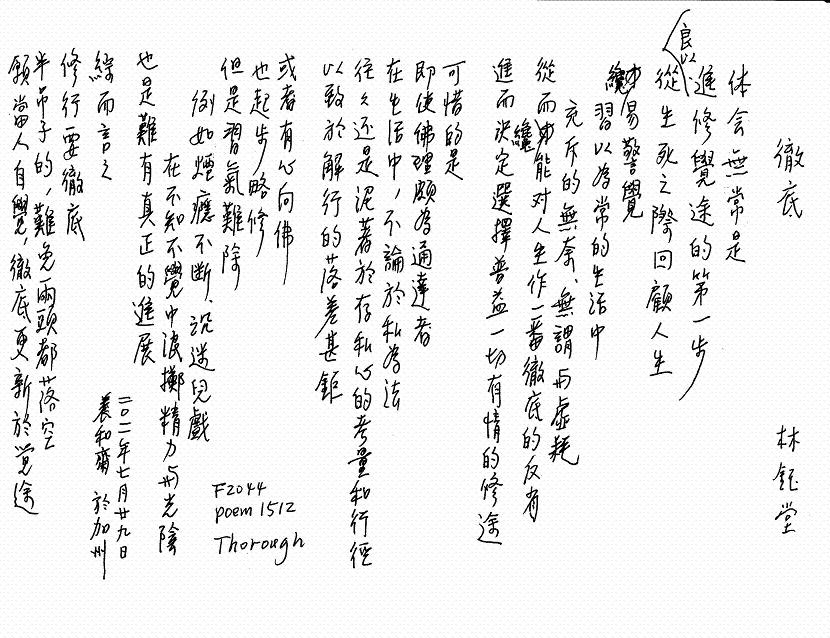 徹底 林鈺堂
体会無常是
進修覺途的第一步
良以從生死之際回顧人生
纔易警覺
習以為常的生活中
充斥的無奈、無謂与虛耗
從而纔能对人生作一番徹底的反省
進而決定選擇普益一切有情的修途
可惜的是
即使佛理頗為通達者
在生活中,不論於私為法
往々还是泥著於存私心的考量和行徑
以致於解行的落差甚鉅
或者有心向佛
也起步略修
但是習氣難除
例如煙癮不斷、沉迷兒戲
在不知不覺中浪擲精力与光陰
也是難有真正的進展
綜而言之
修行要徹底
半吊子的,難免兩頭都落空
願當人自覺,徹底更新於覚途
二〇一一年七月廿九日
養和齋 於加州
F2044
poem 1512
Thorough